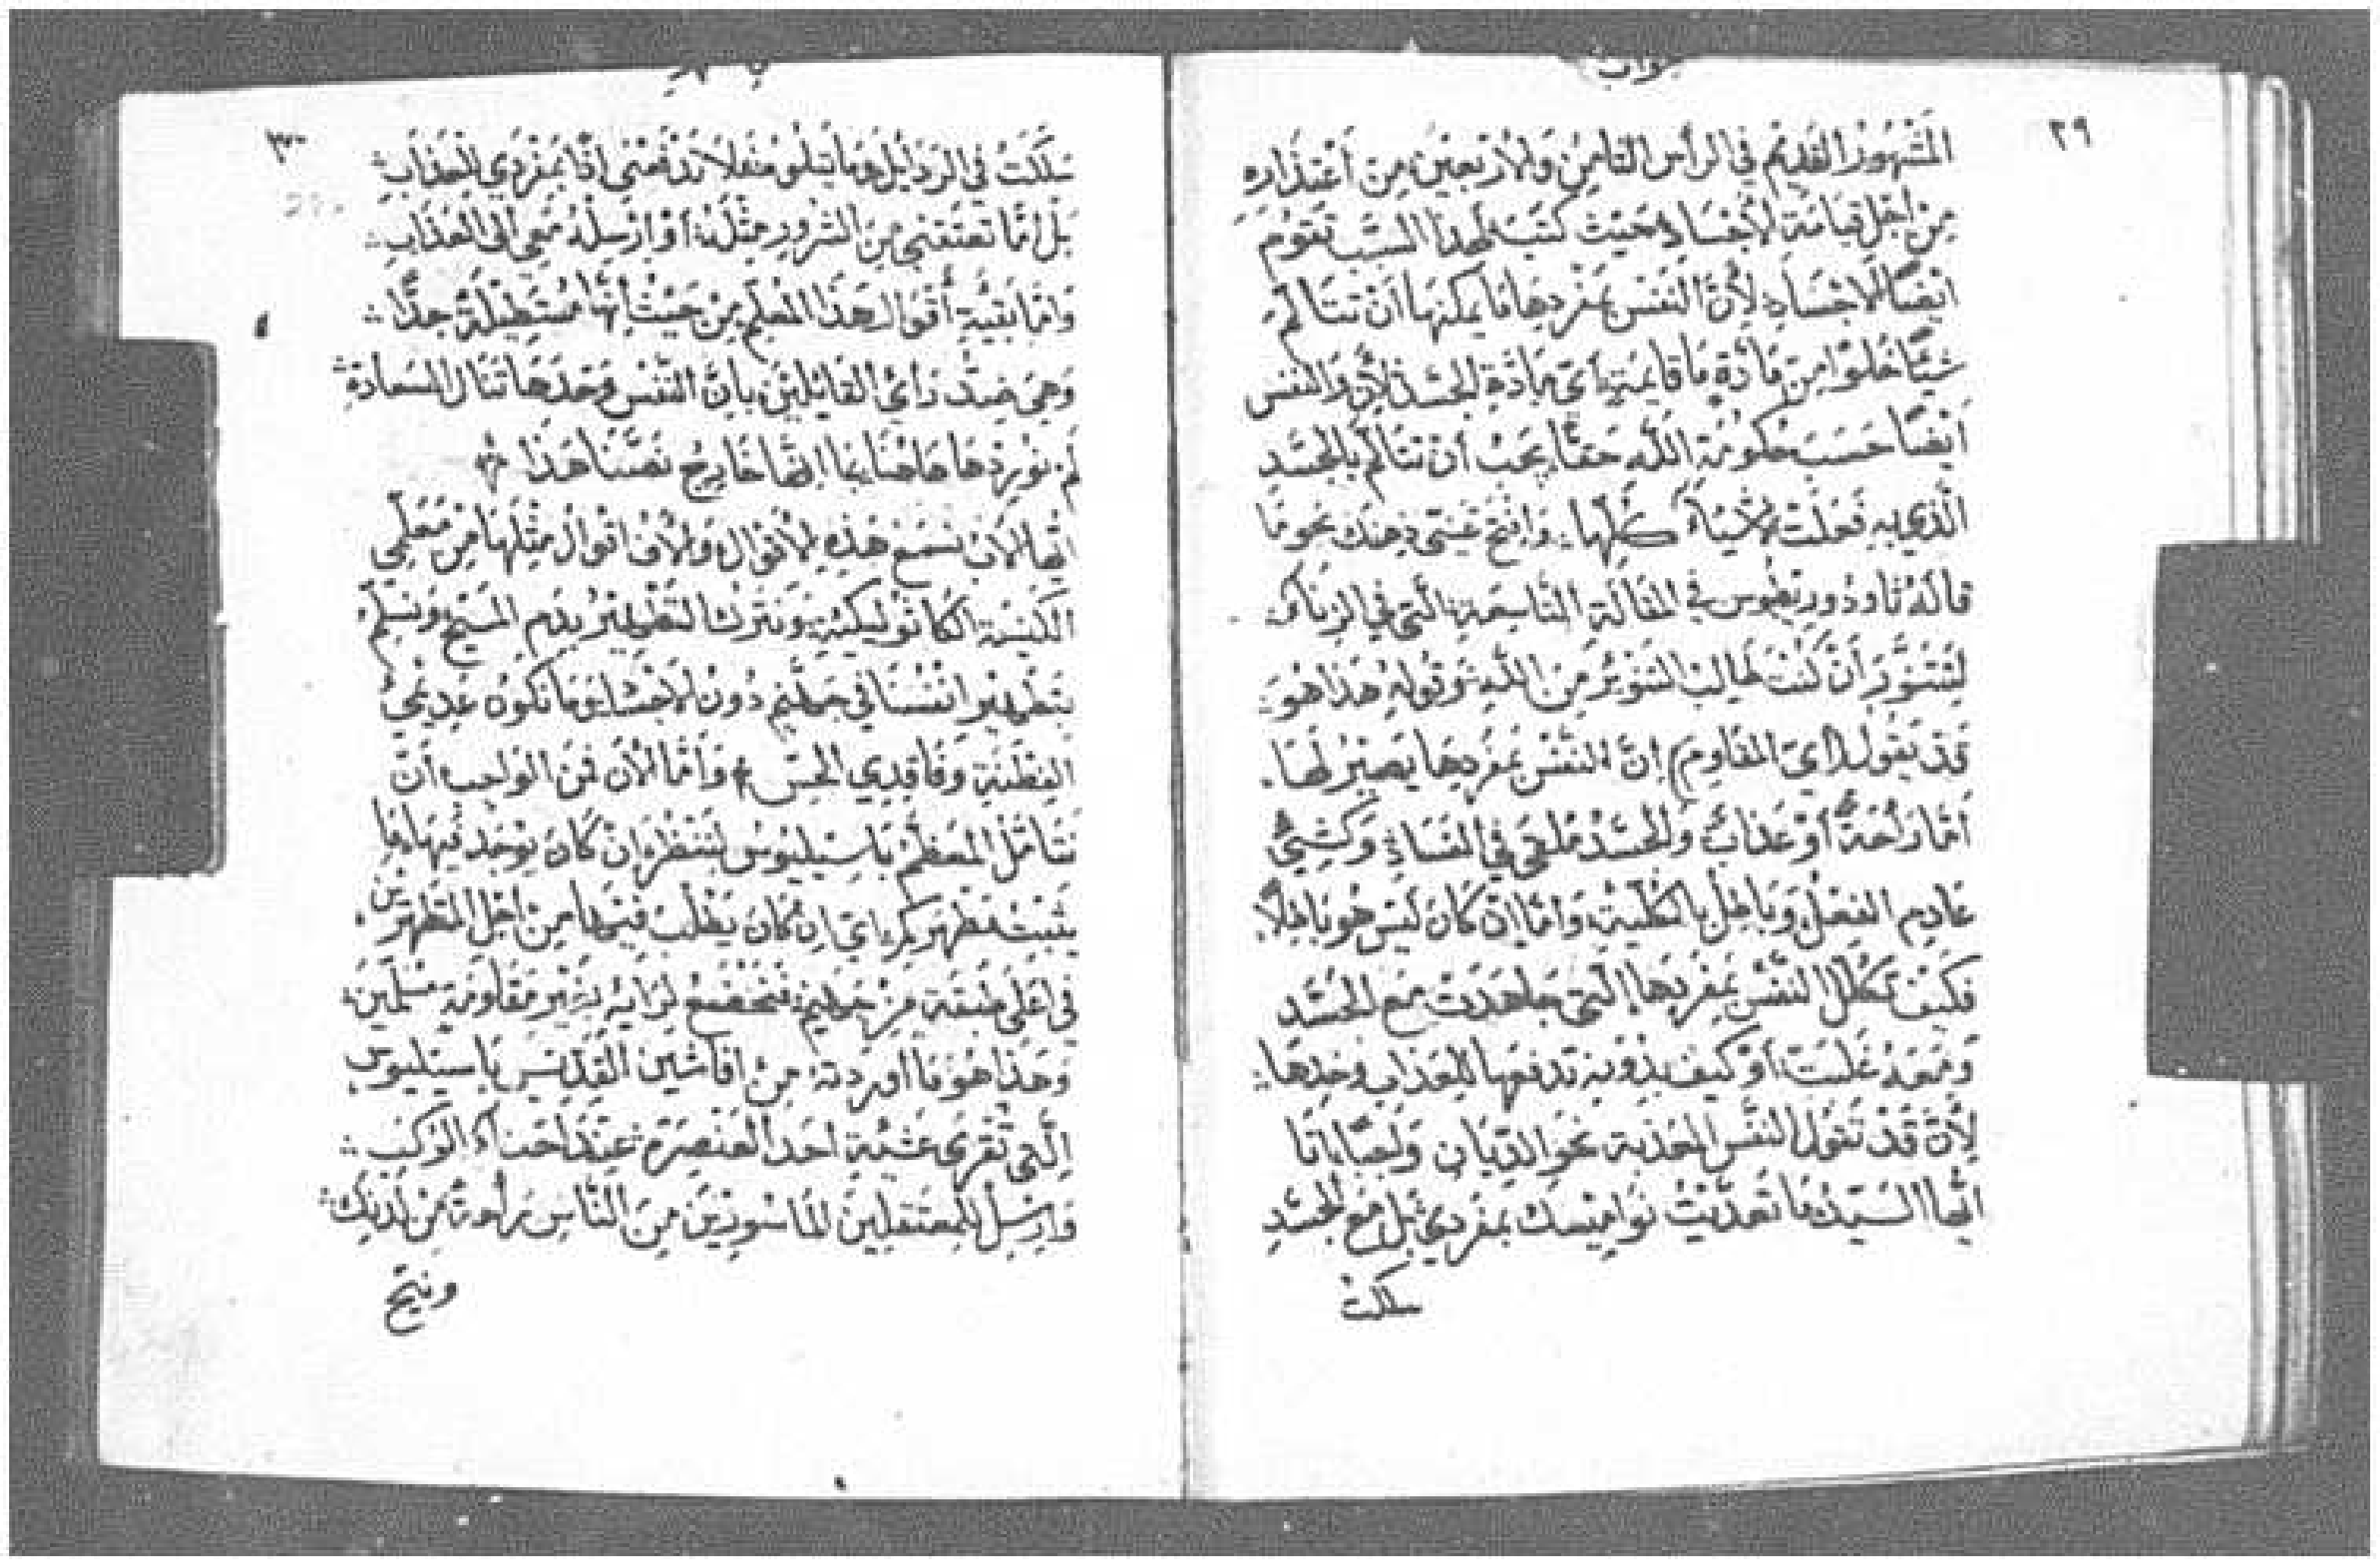 جواب
٢٩
المَشْهُورُ القَديْم في الرأس الثامِن وَالأرْبَعِيْن مِن اَعْتِذَارِه
مِنْ اَجْلِ قيَامَةِ الأجْسَادِ حَيْث كَتَبَ لهذا السَبَب تقوُم
ايْضًا الاجْسَادِ لِأنَّ النَفْسَ بمَفْردِهَا مَا يمكِنهَا اَنْ تتَألَم
شيًا خلوًا مِن مَادَةٍ مَا قايمَةٍ اَيْ مَادَةِ الجسَد لأنَّ وَالنفس
اَيْضًا حَسَبَ حكُومَةِ اللَّه حَقًّا يَجَبْ أنْ تتَالَم بالجسَد
الَّذي بهِ فَعَلَتْ الأشيَاءَ كلّهَا وَافتح عَيْنيّ ذِهنَك نحو مَا
قالَهُ ثاوذوريطوس في المقَالَةِ التَاسِعَةِ الَّتي في
لِتتنَوَّرَ أنْ كُنْتَ طَالِبْ التَنوْيْر مِن اللَّه وَقولهِ هَذا هُوَ
قَدْ يَقوُل رَايَ المقَاوِم إنَّ النَفْسَ بمَفْردِهَا يَصيْرُ لَهَا
اَمَّا رَاحَةٌ أوْ عَذابٌ وَالجسَدْ مُلقَى في الفَسَادِ وَكَشِيءٍ
عَادِم الفِعْلِ وَبَاطِلْ بالكُلّيَةِ وَامَّا انْ كَانَ لَيْسَ هُو بَاطِلاً
فكَيفَ تكَلّل النَفْسَ بمَفْردِهَا الَّتي جَاهَدَت مَع الجسَد
وَمَعَهُ غَلَبَت أوْ كَيفَ بدُونِه تدفعَهَا للعَذاب وَحْدهَا
لأنَّ قَدْ تَقوُل النَفْس المُعَذبَة نحَو الديَان
ايُّها السَيّد مَا تعَدّيْتُ نوَامِيْسَك بمفْردِي بَل مَعَ الجسَدِ
سلكت
٣٠
سَلَكتُ في الرَذايْل وَمَا يَتلو فَلا تدْفَعْني أنَا بمَفْرَدِي للعَذابِ
بَلْ امَّا تَعْتقني مِنَ الشرُورِ مِثْلَهُ أوْ ارْسِلهُ مَعي الى العَذابِ
وَامَّا بَقيَّة أقْوَال هَذا المُعَلِم مِنْ حَيْثُ اِنّها مُسْتَطِيلَة جدًّا
وَهِيَ ضِدّ رَايْ القَايْلِيْنَ بانَّ النَفْس وَحْدَهَا تنَال السَعادَة
لَم نوُردْهَا هَاهُنَا بمَا انّهَا خَارج نصّنَا هَذا
الكَنِيْسَة الكَاثوليْكيَة وَنتركُ التَطهِيْرُ بدَم المَسِيْح وَنسَلم
بتَطهيْرِ انْفُسْنَا في جَهنّم دُون الأجْسَاد وَمَا نكون عَديْمي
الفِطنَة وَفاقِدِي الحِسّ وَأمَّا الأن فمِنَ الوَاجِب أنْ
نتَامَلْ المُعَظّم بَاسِيليُوس لننظُر انْ كَان يُوْجَد فيْهَا مَا
يُثبِت مَطْهركم ايْ ان كَان يَطلُب فيْهَا مِنْ اَجْل المُتطهّرين
في اعْلَى طبَقةٍ مِنْ جَهنّم فَنخْضَعُ لرَايه بغيْر مقَاوَمَةٍ مُسَلِمينَ
وَهَذا هُوَ مَا اورَدتهُ مِنْ افاشين القِدّيس بَاسيليوس
الَّتي تقرَى عَشيَّة احَد العَنْصَرَة عِندَ احنَاءَ الرُكَب
وَارسِلْ للمعْتَقلِينَ المَاسُورِيْنَ مِنَ النَّاسِ رَاحَةً مِن لَدنك
ونيح